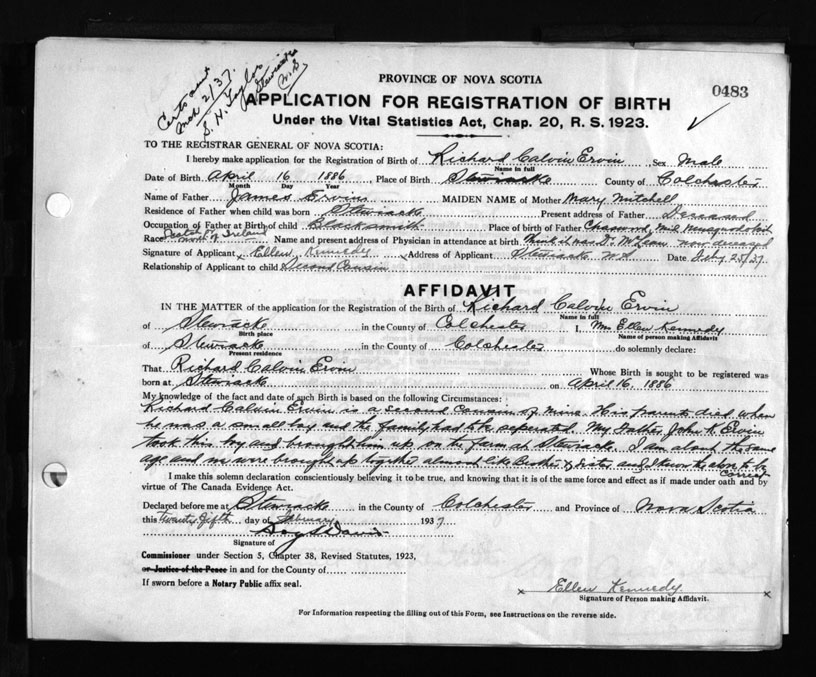 Certs sent
Mch 2/37.
S. H. Taylor
Stewiacke
N.S.
PROVINCE OF NOVA SCOTIA
0483
APPLICATION FOR REGISTRATION OF BIRTH
Under the Vital Statistics Act, Chap. 20, R. S. 1923.
TO THE REGISTRAR GENERAL OF NOVA SCOTIA:
I hereby make application for the Registration of Birth of Richard Calvin Ervin Sex Male
Name in full
Date of Birth April 16 1886 Place of Birth Stewiacke County of Colchester
Month Day Year
Name of Father James Ervin MAIDEN NAME of Mother Mary Mitchell
Residence of Father when child was born Stewiacke Present address of Father Deceased
Occupation of Father at Birth of child Blacksmith Place of birth of Father Mid. Musquodoboit
Race North of Ireland Name and present address of Physician in attendance at birth. Think it was Dr. McLean now deceased
Signature of Applicant x Ellen Kennedy x Address of Applicant Stewiacke N.S. Date Feby 25/37.
Relationship of Applicant to child Second Cousin
AFFIDAVIT
IN THE MATTER of the application for the Registration of the Birth of Richard Calvin Ervin
Name in full
of Stewiacke in the County of Colchester I, Mrs Ellen Kennedy
Birth place Name of person making Affidavit
of Stewiacke in the County of Colchester do solemnly declare:
Present residence
That Richard Calvin Ervin Whose Birth is sought to be registered was
born at Stewiacke on April 16, 1886
My knowledge of the fact and date of such Birth is based on the following Circumstances:
Richard Calvin Ervin is a second cousin of mine. His parents died when
he was a small boy and the family had to be separated. My Father, John K. Ervin
took this boy and brought him up on the farm at Stewiacke. I am about the same
age and we were brought up together almost like brother & sister and I know the above to be
correct
I make this solemn declaration conscientiously believing it to be true, and knowing that it is of the same force and effect as if made under oath and by
virtue of The Canada Evidence Act.
Declared before me at Stewiacke in the County of Colchester and Province of Nova Scotia
this twenty fifth day of February 1937
Boyd Davis
Signature of
Commissioner under Section 5, Chapter 38, Revised Statutes, 1923,
or Justice of the Peace in and for the County of
If sworn before a Notary Public affix seal.
x Ellen Kennedy x
Signature of Person making Affidavit.
For Information respecting the filling out of this Form, see Instructions on the reverse side.